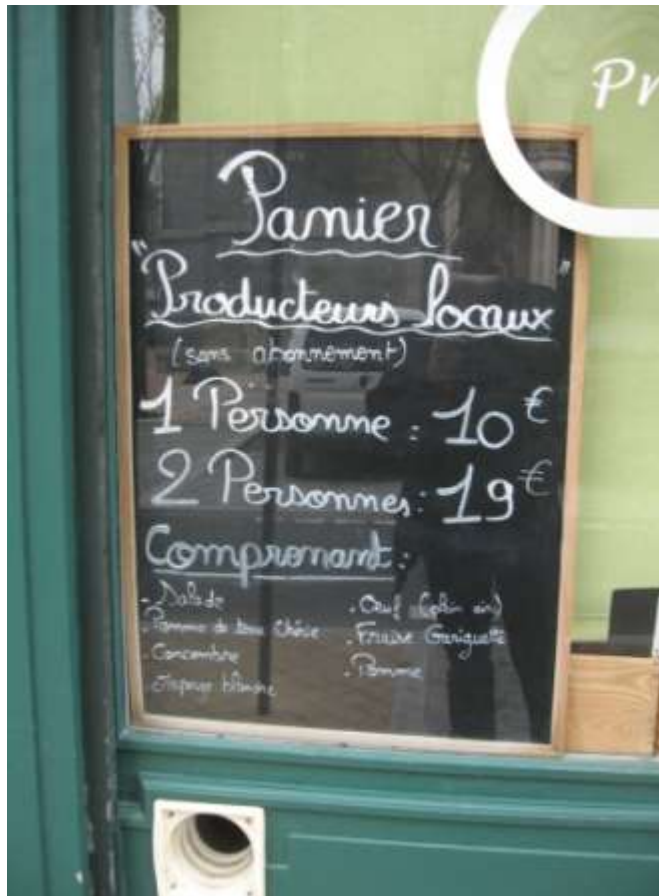 Pr
Panier
"Producteurs locaux"
(sans abonnement)
1 Personne : 10 €
2 Personnes : 19 €
Comprenant :
- Salade
- Pomme de terre Chérie
- Concombre
- Asperge blanche
- Œuf
- Fraise Gariguette
- Pomme